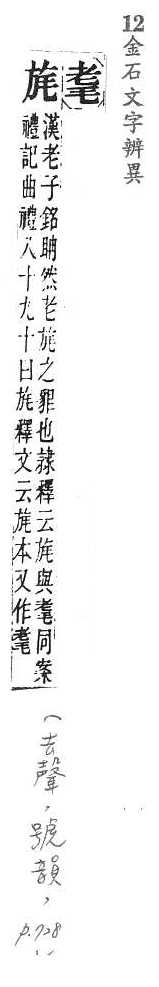 12金石文字辨異
耄
旄
漢老子銘聃然老旄之貌也隷釋云旄與耄同案
禮記曲禮八十九十曰旄釋文云旄本又作耄
(去聲,號韻,
p.728